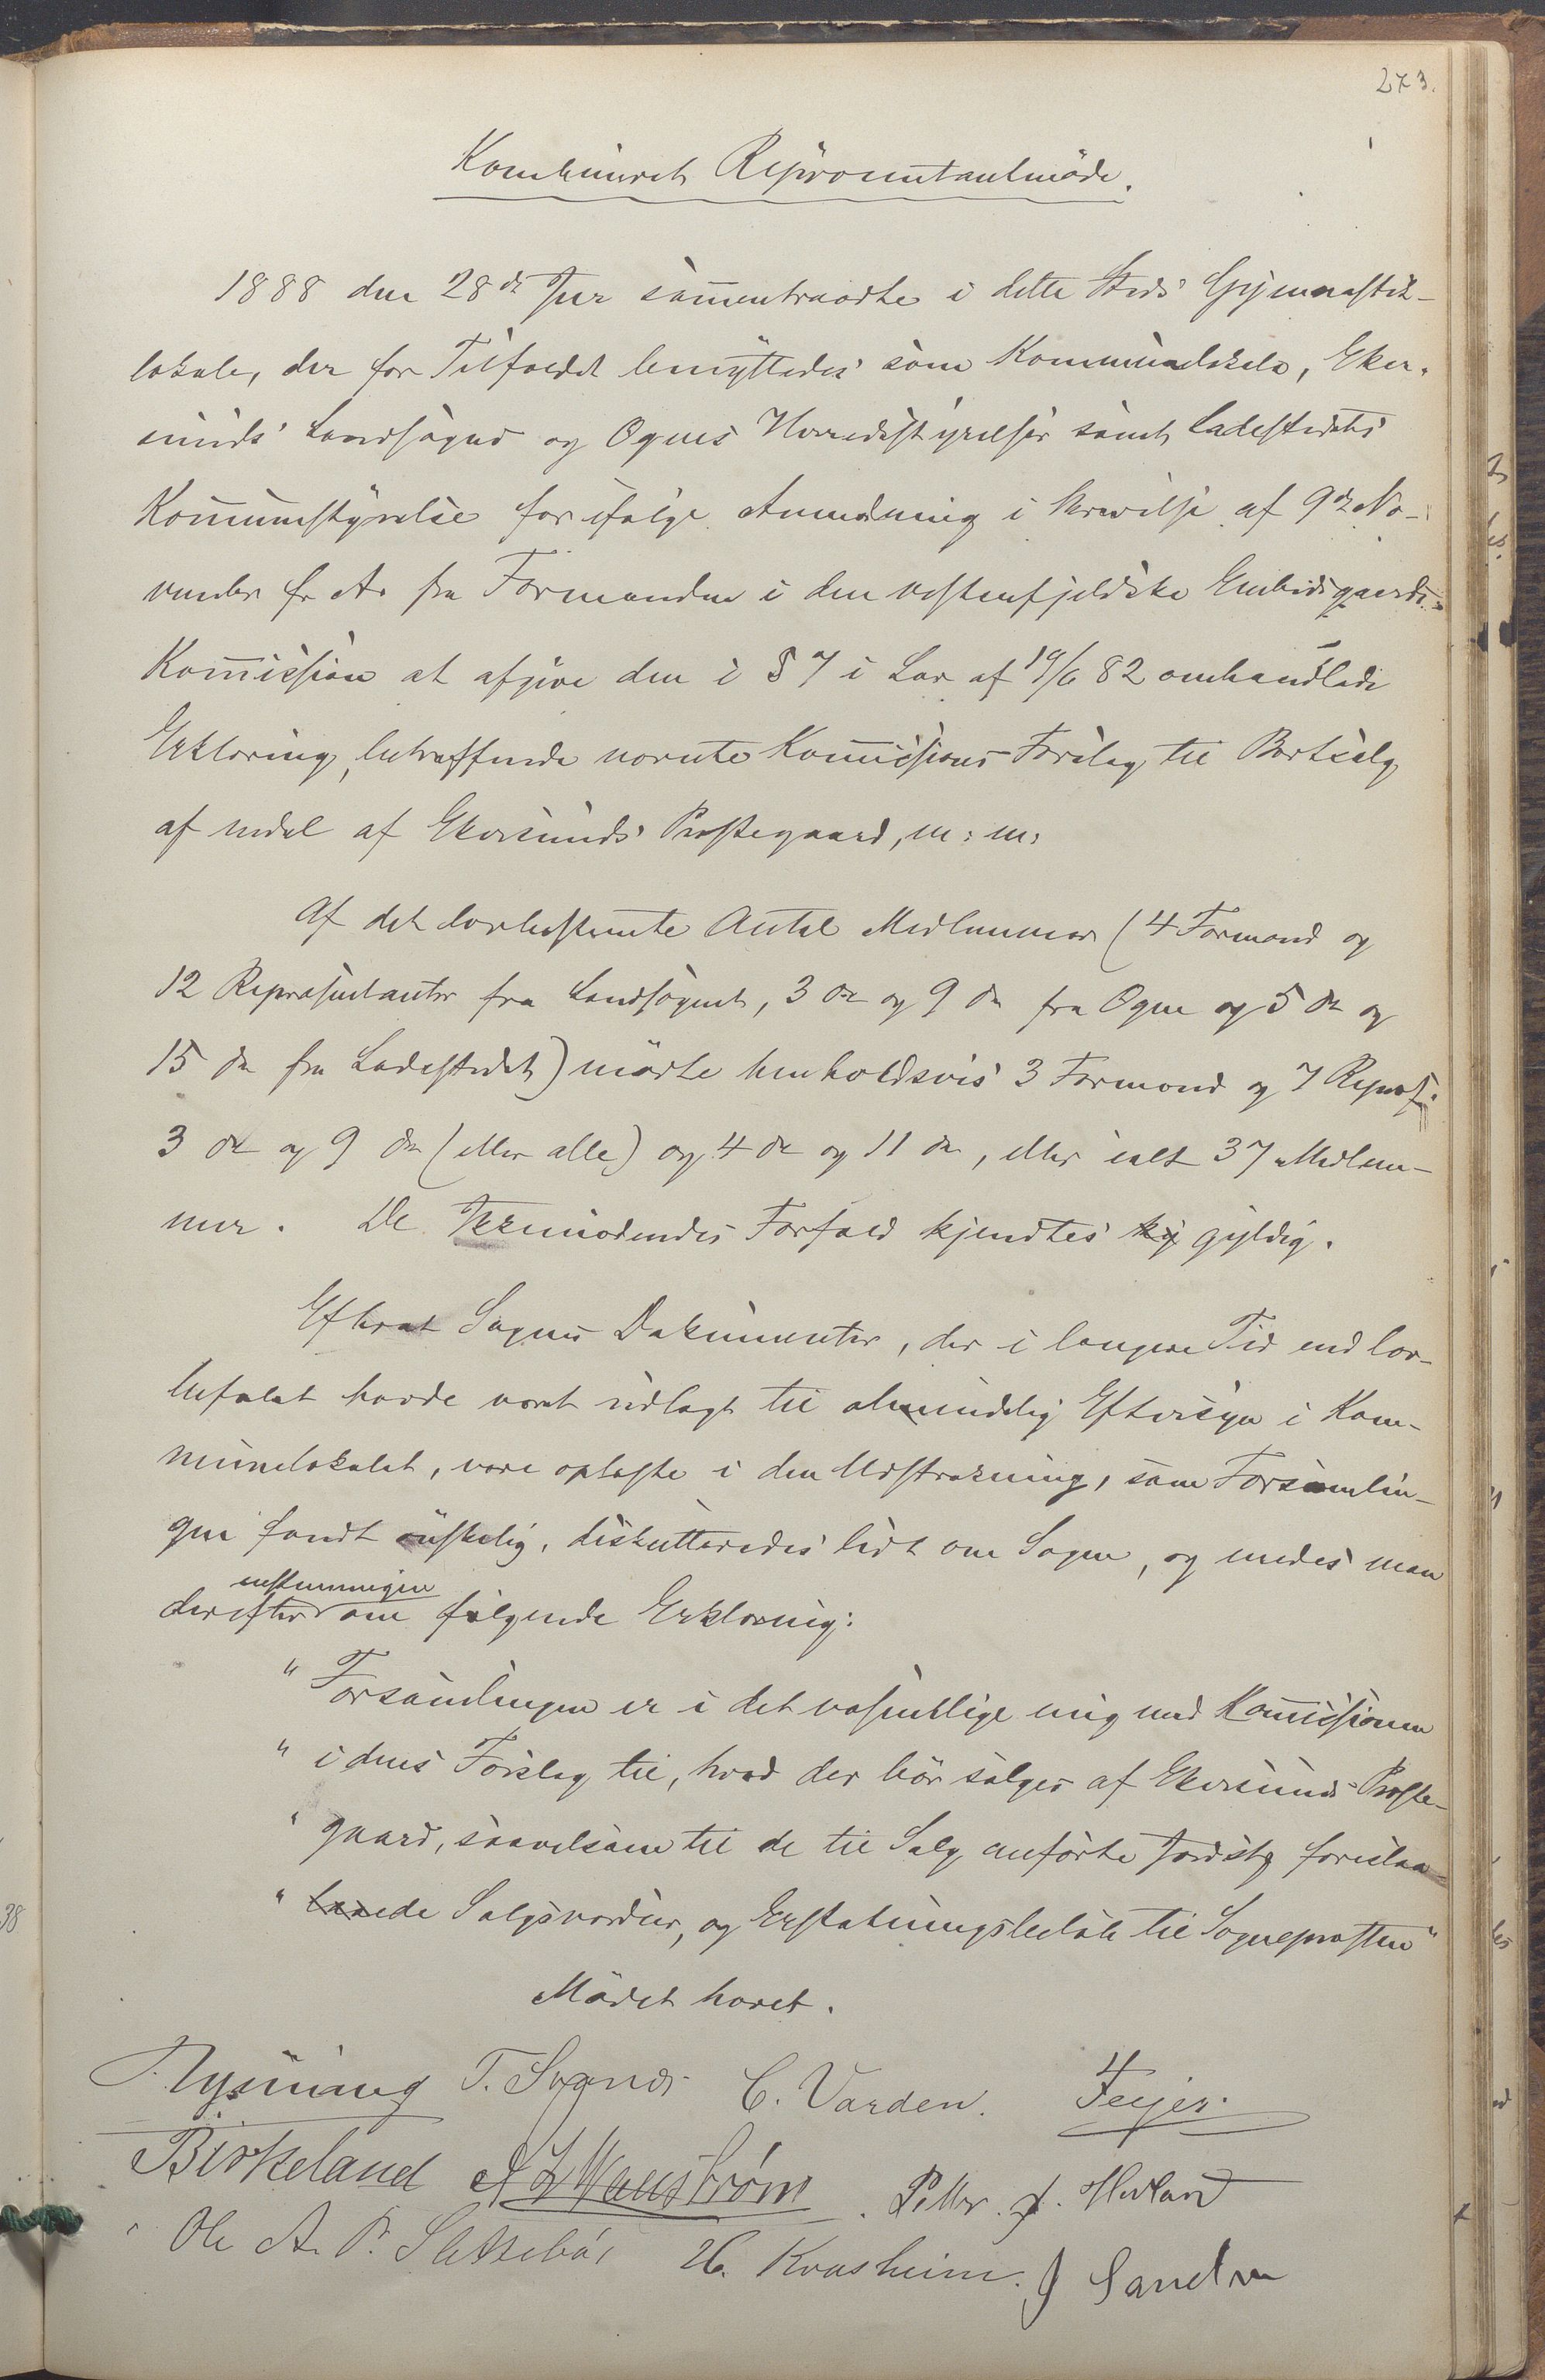 273.
Kombineret Repræsentantmöde.
1888 den 28de sammentraadte i dette Steds Gymnastik-
lokale, der for Tilfældet benyttedes som Kommunelokale, Eker-
sunds Landsogns og Ognes Herredsstyrelser samt Ladestedets
Kommunestyrelse for ifølge Anmodning i Skrivelse af 9de No-
vember f. A. fra Formanden i den vestenfjeldske Embedsgaards-
Kommission at afgive den i § 7 i Lov af 19/6 82 omhandlede
Erklæring, betræffende nævnte Kommissions Forslag til Bortsalg
af endel af Ekersunds Prestegaard, m: m:
Af det lovbestemte Antal Medlemmer (4 Formænd og
12 Repræsentanter fra Landsognet, 3 do og 9 do fra Ogne og 5 do og
15 do fra Ladestedet) mödte henholdsvis 3 Formænd og 7 Repræs.
3 do og 9 do (eller alle) og 4 do og 11 do, eller ialt 37 Medlem-
mer. De Ikkemödendes Forfald kjendtes gyldig.
Efterat Sagens Dokumenter, der i længere Tid end lov-
befalet havde været udlagt til almindelig Eftersyn i Kom-
munelokalet, vare oplæste i den Udstrækning, som Forsamlin-
gen fandt önskelig, diskutteredes lidt om Sagen, og enedes man
enstemmigen
derefter om følgende Erklæring:
" Forsamlingen er i det væsentlige enig med Kommissionen
" i dens Forslag til, hvad der bör sælges af Ekersunds Preste-
" gaard, saavelsom til de til Salg anförte Jordstykker foreslaa-
" ede Salgsværdier, og Erstatningsbelöb til Sognepresten"
Mödet hævet.
Nysæiang T. Svanes C. Varden. Feyer.
Birkeland Wenström. Petter J. Hovland
Ole A. P. Slettebö G. Kvasheim. J Sandve